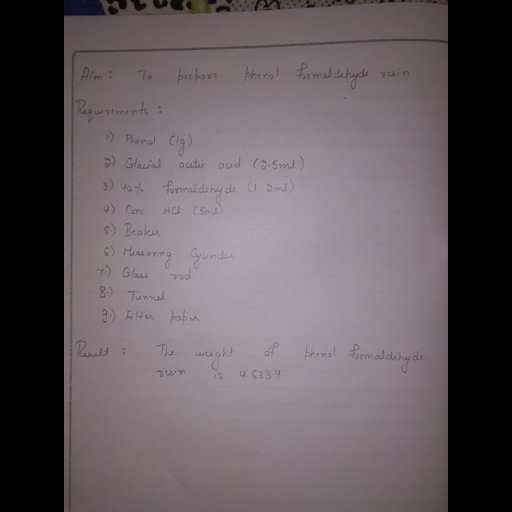 Aim : To prepare phenol formaldehyde resin
Requirements :
1) Phenol (1g)
2) Glacial acetic acid (2.5ml)
3) 40% formaldehyde (1.2ml)
4) Conc HCl (5ml)
5) Beaker
6) Measuring Cylinder
7.) Glass rod
8.) Tunnel
9.) Filter paper
Result : The weight of phenol formaldehyde
resin is